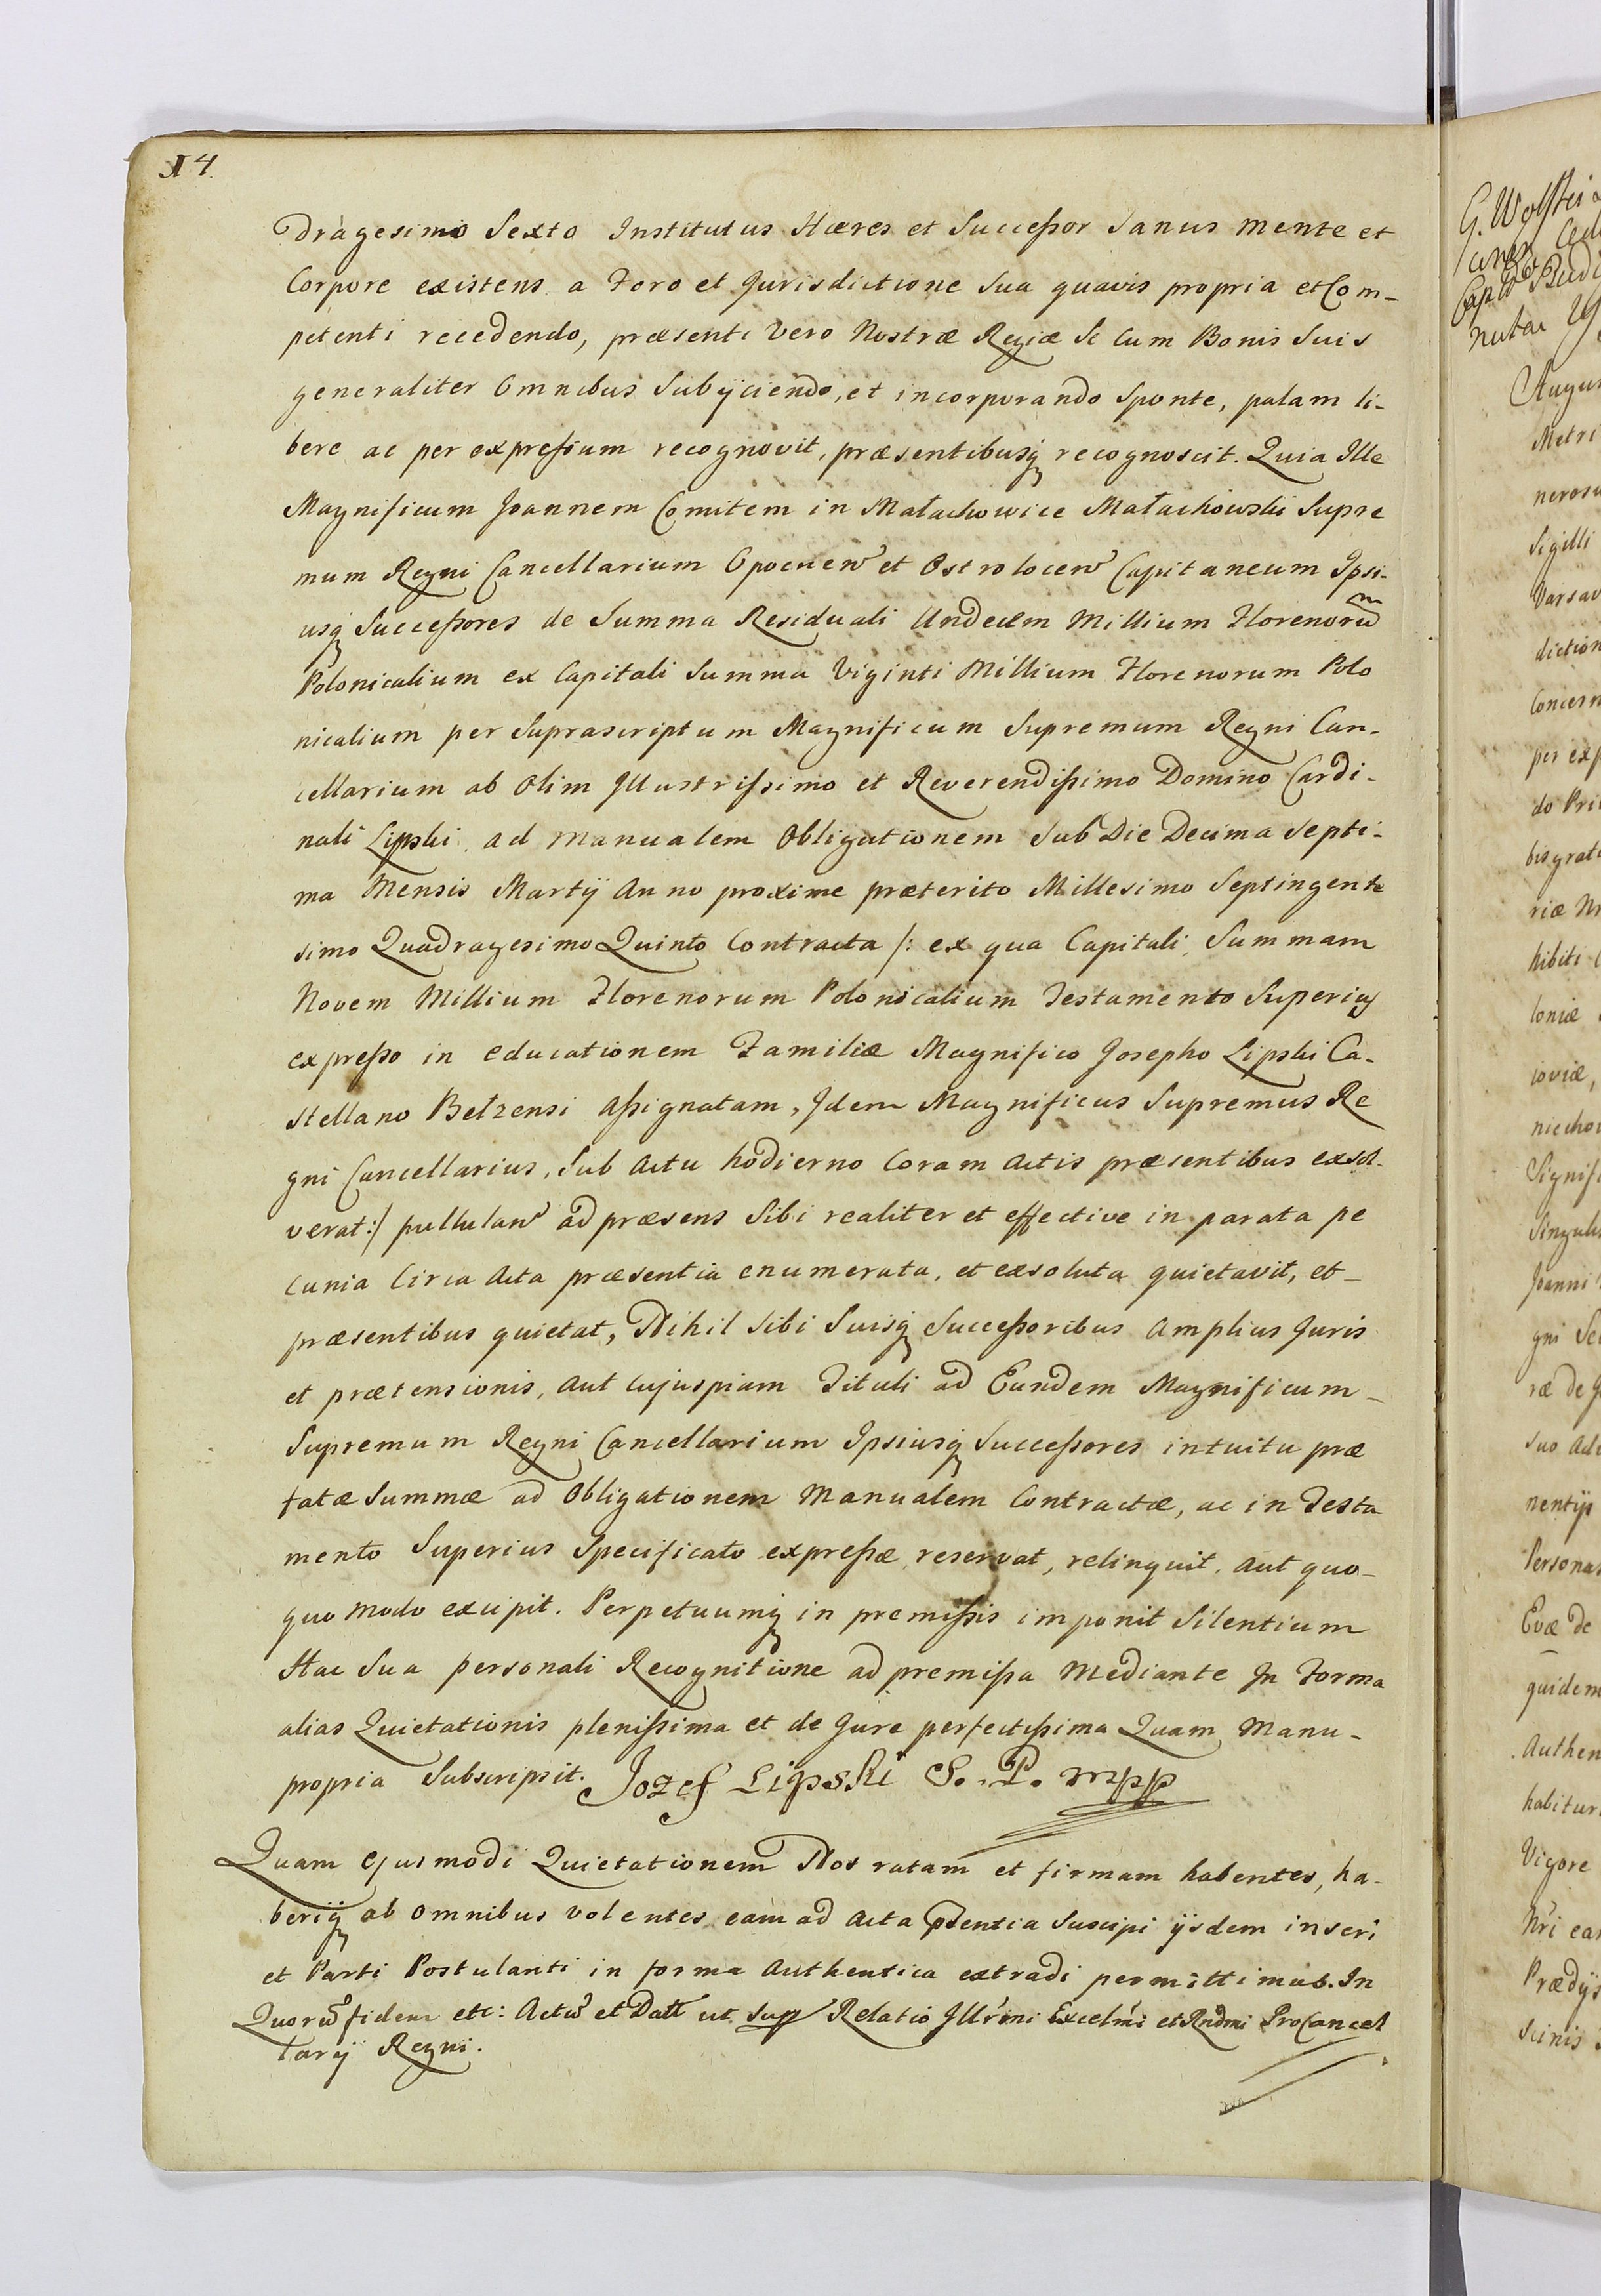 14.
dragesimo Sexto Institutus Hæres et Successor Sanus mente et
Corpore existens a Foro et Jurisdictione Sua quavis propria et Com-
petenti recedendo, præsenti vero Nostræ Regiæ Se cum Bonis Suis
generaliter Omnibus Subijciendo, et incorporando Sponte, palam li-
bere ac per expressum recognovit, præsentibusq recognoscit. Quia Ille
Magnificum Joannem Comitem in Małachowice Małachowski Supre
mum Regni Cancellarium Opocnen et Ostrolocen Capitaneum Ipsi-
usq Successores de Summa Residuali Undecim Millium Florenorum
Polonicalium ex Capitali Summa Viginti Millium Florenorum Polo
nicalium per Suprascriptum Magnificum Supremum Regni Can-
cellarium ab Olim Illustrissimo et Reverendissimo Domino Cardi-
nali Lipski ad manualem Obligationem Sub Die Decima Septi-
ma Mensis Martij Anno proxime præterito Millesimo Septingente
simo Quadragesimo Quinto Contracta /: ex qua Capitali Summam
Novem Millium Florenorum Polonicalium Testamento Superius
expresso in educationem Familiæ Magnifico Josepho Lipski Ca-
stellano Bełzensi assignatam, Idem Magnificus Supremus Re
gni Cancellarius, Sub Actu hodierno Coram Actis præsentibus exsol-
verat :/ pullulan ad præsens Sibi realiter et effective in parata pe
cunia Circa Acta præsentia enumerata, et exsoluta quietavit, et-
præsentibus quietat, Nihil Sibi Suisq Successoribus Amplius Juris
et prætensionis, Aut Cujuspiam Tituli ad Eundem Magnificum-
Supremum Regni Cancellarium Ipsiusq Successores intuitu præ
fatæ Summæ ad Obligationem Manualem Contractæ, ac in Testa
mento Superius Specificato expressæ reservat, relinquit, Aut quo-
quo modo excipit. Perpetuumq in premissis imponit Silentium
Hac Sua personali Recognitione ad premissa Mediante In Forma
alias Quietationis plenissima et de Jure perfectissima Quam Manu-
propria Subscripsit. Jozef Lipski S. P. mpp
Quam ejusmodi Quietationem Nos ratam et firmam habentes, ha-
beriq ab omnibus volentes eam ad Acta pntia Suscipi ijsdem inseri
et Parti Postulanti in forma Authentica extradi permittimus. In
Quorum fidem etc: Actum et Datt ut Sup Relatio Illrmi Excelmi et Rndmi ProCancel
larij Regni.
G. Wolski
Augus
Metri
neros
Sigilli
Varsav
diction
Concern
per exp
do Pri
bis grat
riæ Nr
hibiti
loniæ
coviæ,
niecho
Signif
Singul
Joanni
gni Se
ræ de
suo
nentijs
Personas
Evæ de
quidem
Authen
habitur
Vigore
Nri ea
Prædijs